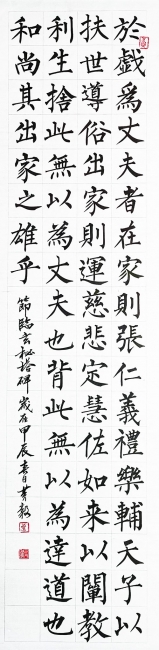 於戲為丈夫者在家則張仁義禮樂輔天子以
扶世導俗出家則運慈悲定慧佐如来以闡教
利生捨此無以為丈夫也背此無以為達道也
和尚其出家之雄乎
節臨玄秘塔碑歲在甲辰春日